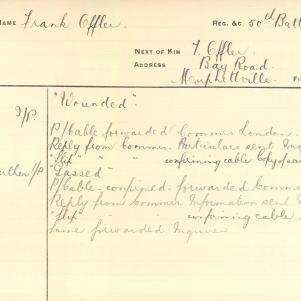 NAME Frank Offler. REG. &C. 50th Batt
NEXT OF KIN T. Offler.
ADDRESS Bay Road.
Morphettville.
I/P. "Wounded".
P/Cable forwarded Commrs London.
Reply from Commrs. Particulars sent Inq
"slip" " " confirming cable Copy of
urther I/P "Gassed"
P/Cable - confirmed - forwarded Commrs
Reply from Commrs Information sent
"slip" " " confirming cable
same forwarded Inquirer